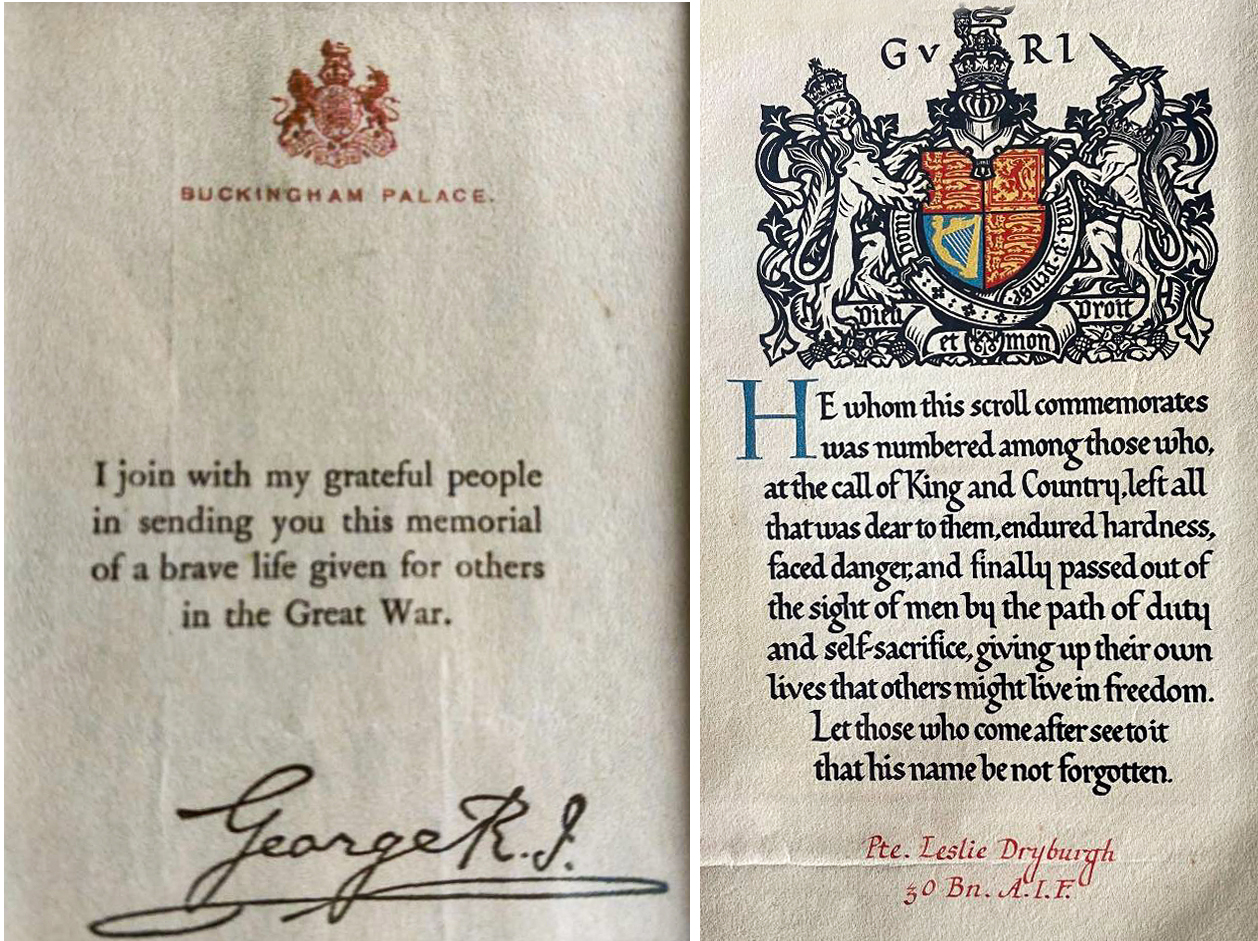 BUCKINGHAM PALACE.
I join with my grateful people
in sending you this memorial
of a brave life given for others
in the Great War.
George R.I.
G V R I
Honi
soit qui mal y pense
Dieu
et mon
Droit
HE whom this scroll commemorates
was numbered among those who,
at the call of King and Country, left all
that was dear to them, endured hardness,
faced danger, and finally passed out of
the sight of men by the path of duty
and self-sacrifice, giving up their own
lives that others might live in freedom.
Let those who come after see to it
that his name be not forgotten.
Pte. Leslie Dryburgh
30 Bn. A.I.F.